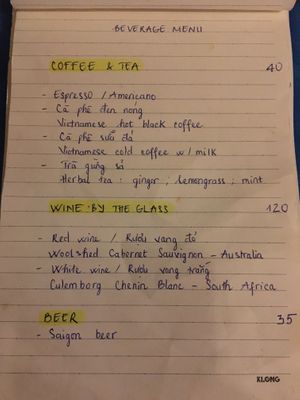 BEVERAGE MENU
COFFEE & TEA 40
- Espresso / Americano
- Cà phê đen nóng
Vietnamese hot black coffee
- Cà phê sữa đá
Vietnamese cold coffee w/ milk
- Trà gừng sả
Herbal tea : ginger ; lemongrass ; mint
WINE BY THE GLASS 120
- Red wine / Rượu vang đỏ
Woolshed Cabernet Sauvignon - Australia
- White wine / Rượu vang trắng
Culemborg Chenin Blanc - South Africa
BEER 35
- Saigon beer
KLONG